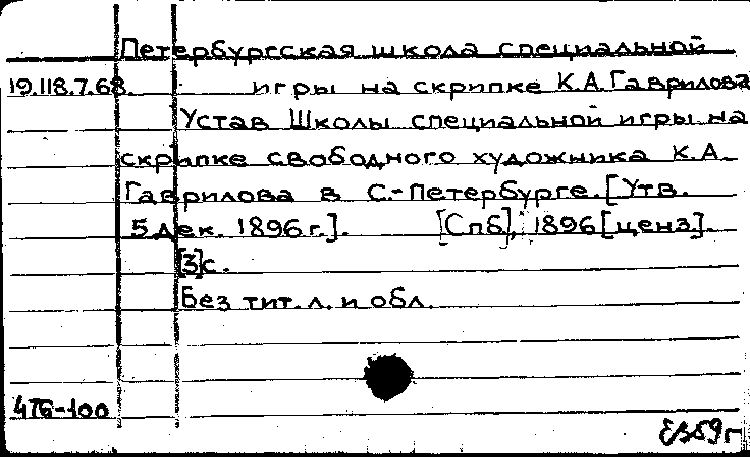 Петербургская школа специальной
19.118.7.68. игры на скрипке К.А.Гаврилова
Устав Школы специальной игры на
скрипке свободного художника К.А.
Гаврилова в С.-Петербурге. [Утв.
5 дек. 1896 г.]. [Спб], 1896 [ценз].
[3]с.
Без тит. л. и обл.